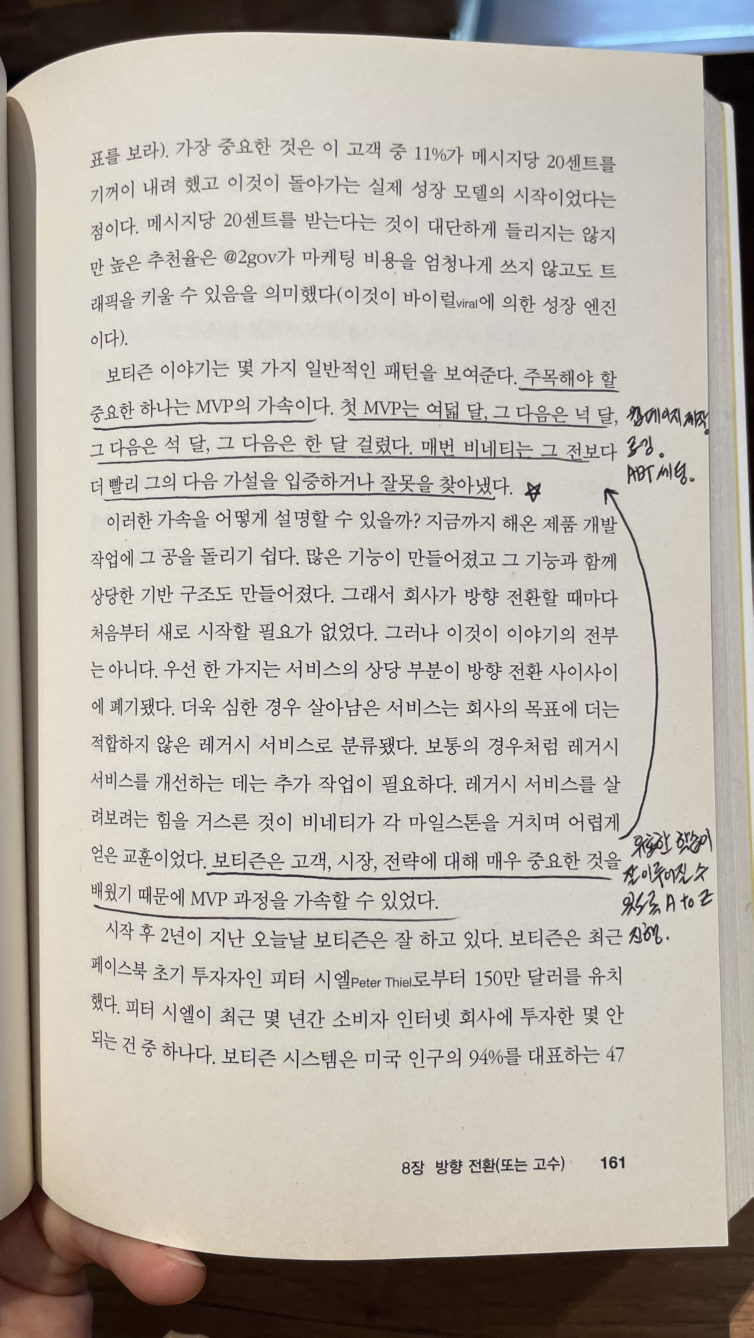 표를 보라). 가장 중요한 것은 이 고객 중 11%가 메시지당 20센트를
기꺼이 내려 했고 이것이 돌아가는 실제 성장 모델의 시작이었다는
점이다. 메시지당 20센트를 받는다는 것이 대단하게 들리지는 않지
만 높은 추천율은 @2gov가 마케팅 비용을 엄청나게 쓰지 않고도 트
래픽을 키울 수 있음을 의미했다(이것이 바이럴viral에 의한 성장 엔진
이다).
보티즌 이야기는 몇 가지 일반적인 패턴을 보여준다. 주목해야 할
중요한 하나는 MVP의 가속이다. 첫 MVP는 여덟 달, 그 다음은 넉 달,
그 다음은 석 달, 그 다음은 한 달 걸렸다. 매번 비네티는 그 전보다
더 빨리 그의 다음 가설을 입증하거나 잘못을 찾아냈다.
이러한 가속을 어떻게 설명할 수 있을까? 지금까지 해온 제품 개발
작업에 그 공을 돌리기 쉽다. 많은 기능이 만들어졌고 그 기능과 함께
상당한 기반 구조도 만들어졌다. 그래서 회사가 방향 전환할 때마다
처음부터 새로 시작할 필요가 없었다. 그러나 이것이 이야기의 전부
는 아니다. 우선 한 가지는 서비스의 상당 부분이 방향 전환 사이사이
에 폐기됐다. 더욱 심한 경우 살아남은 서비스는 회사의 목표에 더는
적합하지 않은 레거시 서비스로 분류됐다. 보통의 경우처럼 레거시
서비스를 개선하는 데는 추가 작업이 필요하다. 레거시 서비스를 살
려보려는 힘을 거스른 것이 비네티가 각 마일스톤을 거치며 어렵게
얻은 교훈이었다. 보티즌은 고객, 시장, 전략에 대해 매우 중요한 것을
배웠기 때문에 MVP 과정을 가속할 수 있었다.
시작 후 2년이 지난 오늘날 보티즌은 잘 하고 있다. 보티즌은 최근
페이스북 초기 투자자인 피터 시엘Peter Thiel로부터 150만 달러를 유치
했다. 피터 시엘이 최근 몇 년간 소비자 인터넷 회사에 투자한 몇 안
되는 건 중 하나다. 보티즌 시스템은 미국 인구의 94%를 대표하는 47
제작
로깅.
ABT 세팅.
유효한 학습이
잘 이루어질 수
있도록 A to Z
진행.
8장 방향 전환(또는 고수) 161